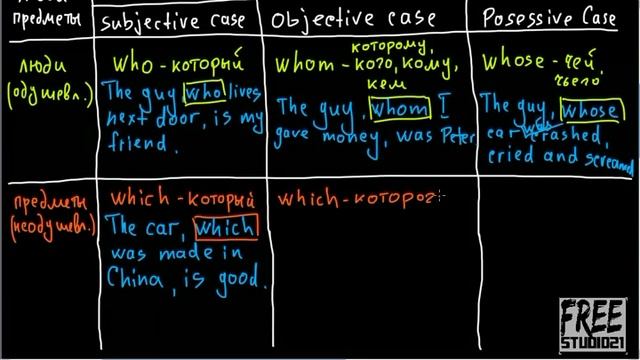 предметы
Subjective case
Objective case
Posessive Case
люди
(одушевл.)
who - который
The guy who lives
next door, is my
friend.
которому,
whom - кого, кому,
кем
The guy, whom I
gave money, was Peter
whose - чей,
чьего
The guy, whose
car was crashed,
cried and screamed
предметы
(неодушевл.)
which - который
The car, which
was made in
China, is good.
which - которог
FREE
STUDIO21